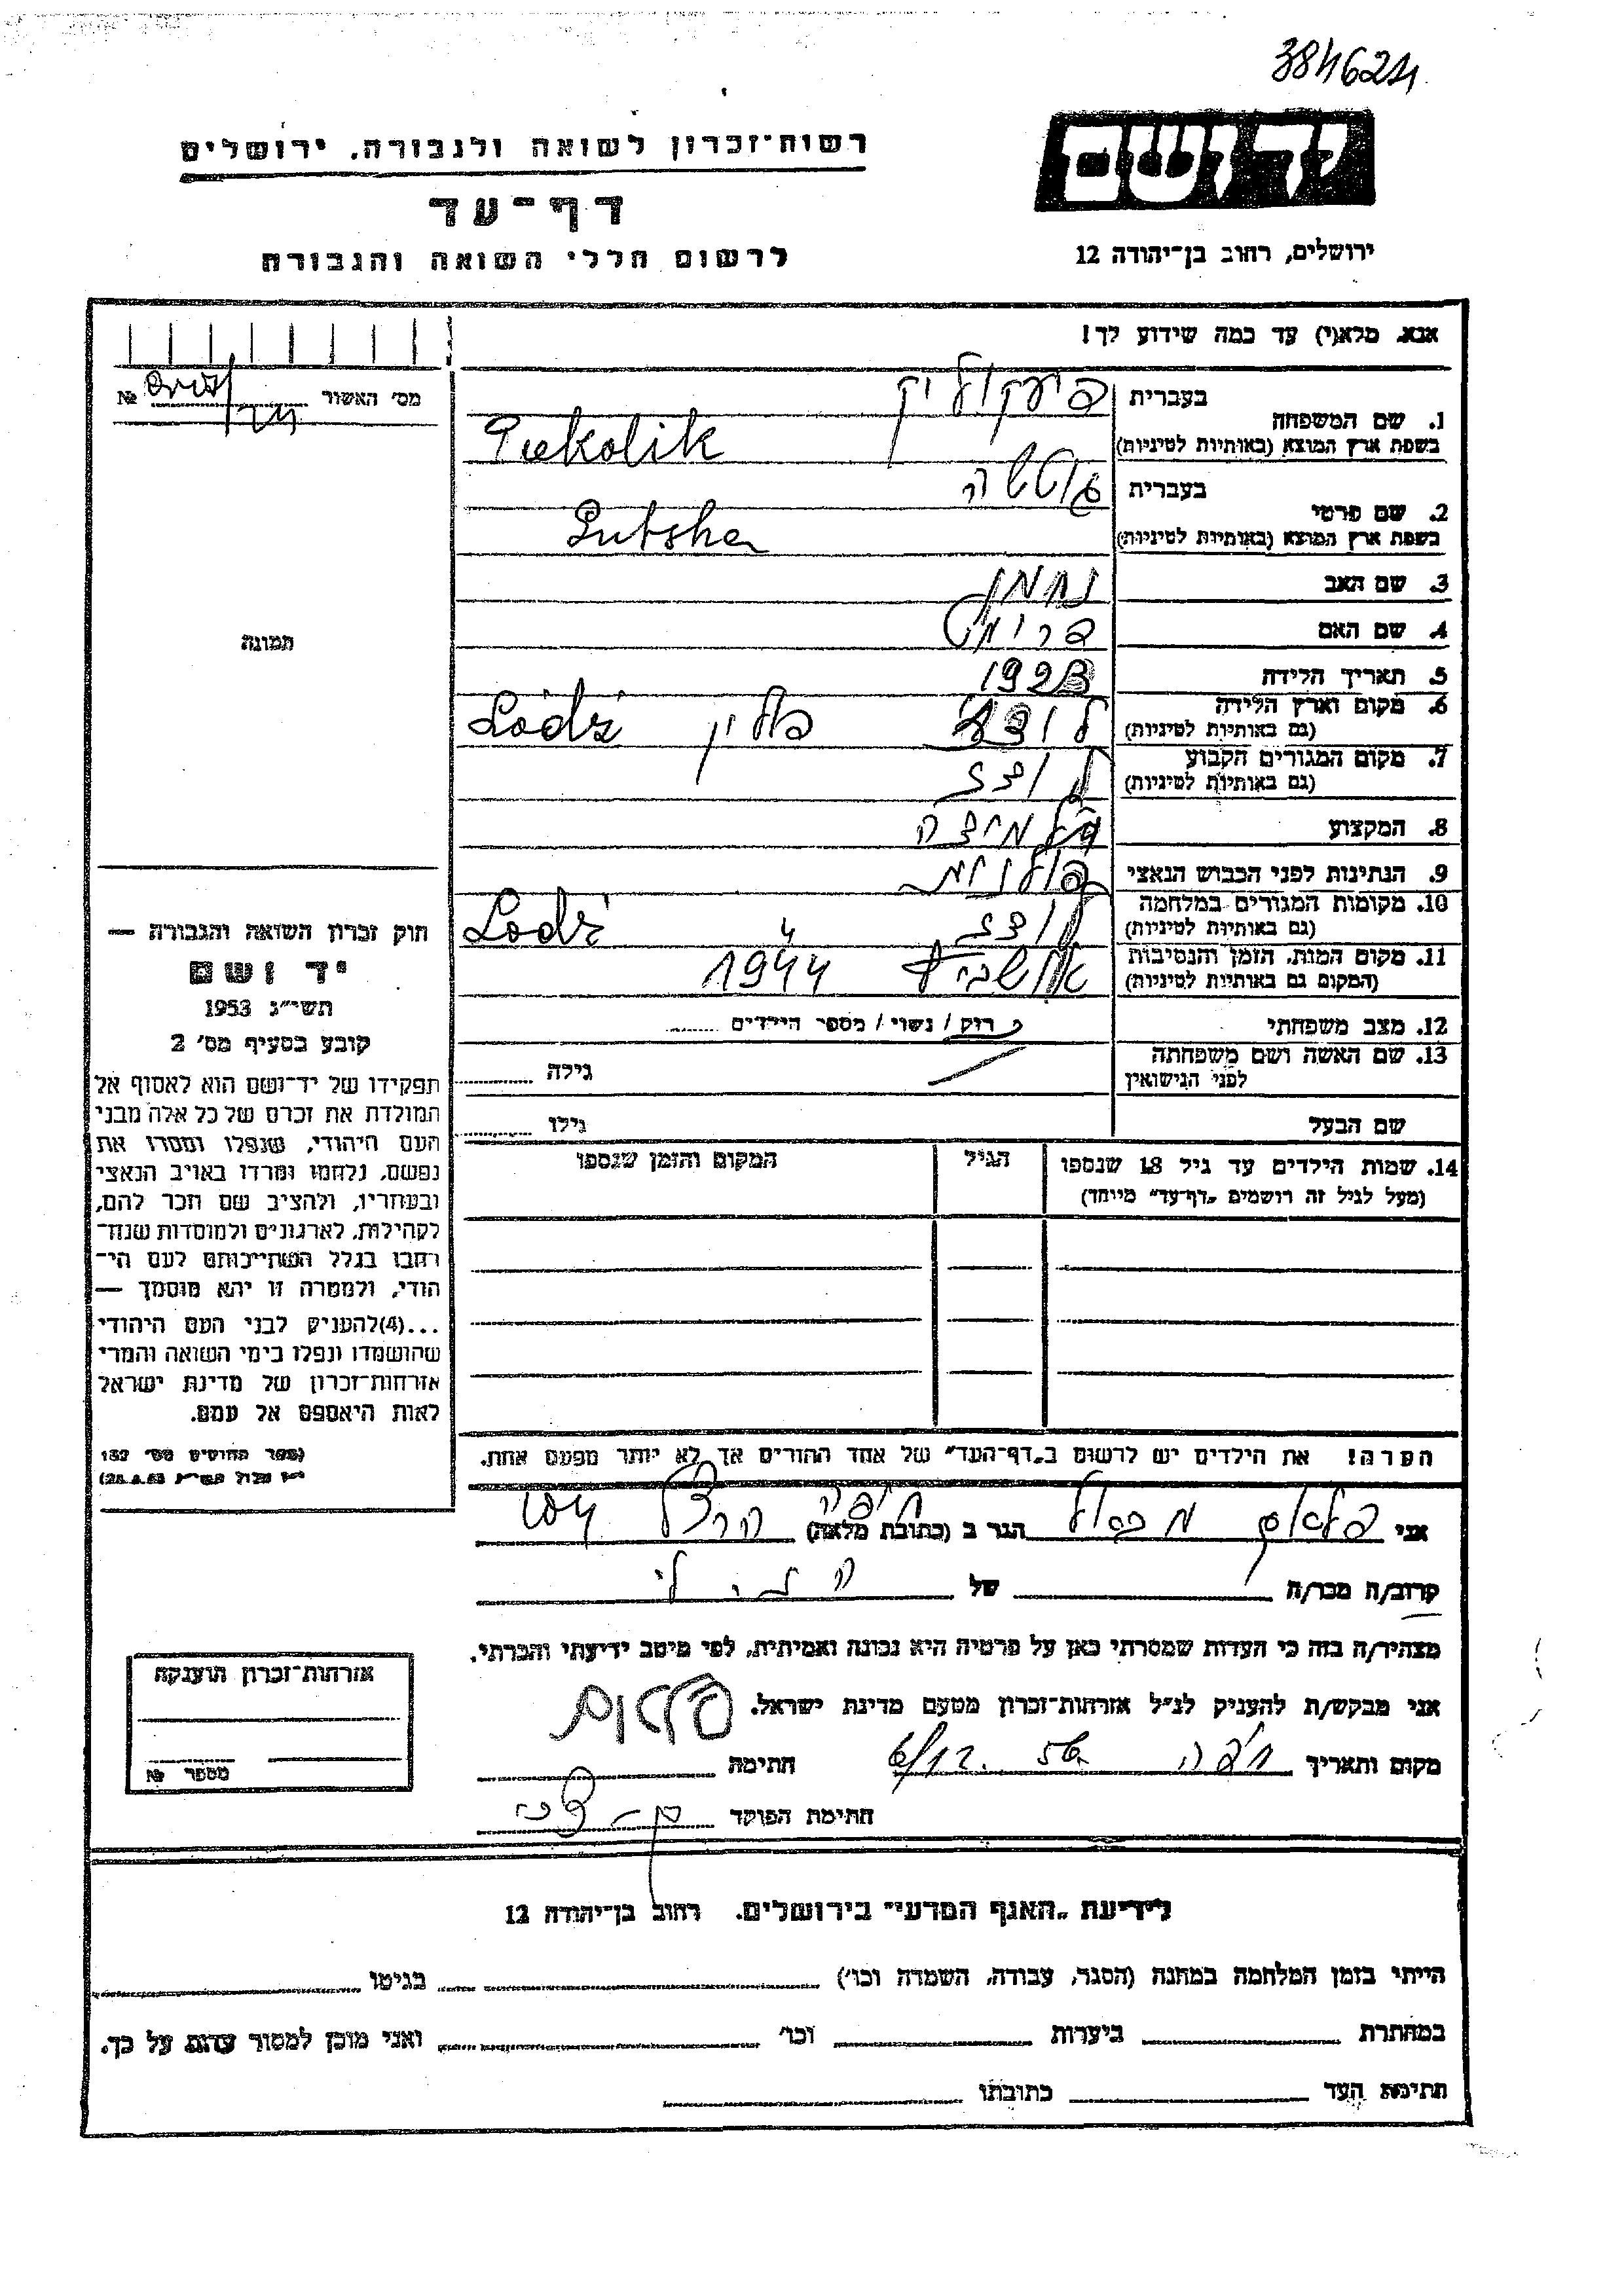 384624
רשות־זכרון לשואה ולגבורה. ירושלים
יד ושם
דף־עד
לרשום חללי השואה והגבורה
ירושלים, רחוב בן־יהודה 12
אנא, מלא(י) עד כמה שידוע לך!
מס׳ האשור №
1. שם המשפחה
בעברית פיעקוליק
בשפת ארץ המוצא (באותיות לטיניות) Piekolik
2. שם פרטי
בעברית
בשפת ארץ המוצא (באותיות לטיניות)
3. שם האב נחמן
4. שם האם
5. תאריך הלידה 1923
6. מקום וארץ הלידה לודז׳ פולין Lodź
(גם באותיות לטיניות)
7. מקום המגורים הקבוע לודז
(גם באותיות לטיניות)
8. המקצוע תלמידה
9. הנתינות לפני הכבוש הנאצי פולנית
10. מקומות המגורים במלחמה לודז Lodź
(גם באותיות לטיניות)
11. מקום המות, הזמן והנסיבות אושביץ 1944
(המקום גם באותיות לטיניות)
12. מצב משפחתי רוק / נשוי / מספר הילדים
13. שם האשה ושם משפחתה גילה
לפני הנישואין
שם הבעל גילו
14. שמות הילדים עד גיל 18 שנספו הגיל המקום והזמן שנספו
(מעל לגיל זה רושמים „דף־עד״ מיוחד)
הערה! את הילדים יש לרשום ב„דף־העד״ של אחד ההורים אך לא יותר מפעם אחת.
תמונה
חוק זכרון השואה והגבורה —
יד ושם
תשי״ג 1953
קובע בסעיף מס׳ 2
תפקידו של יד־ושם הוא לאסוף אל
המולדת את זכרם של כל אלה מבני
העם היהודי, שנפלו ומסרו את
נפשם, נלחמו ומרדו באויב הנאצי
ובעוזריו, ולהציב שם וזכר להם,
לקהילות, לארגונים ולמוסדות שנח־
רבו בגלל השתייכותם לעם הי־
הודי, ולמטרה זו יהא מוסמך —
...(4)להעניק לבני העם היהודי
שהושמדו ונפלו בימי השואה והמרי
אזרחות־זכרון של מדינת ישראל
לאות היאספם אל עמם.
(ספר החוקים מס׳ 132
אני הגר ב (כתובת מלאה) חיפה הרצל
קרוב/ה מכר/ה של
מצהיר/ה בזה כי העדות שמסרתי כאן על פרטיה היא נכונה ואמיתית, לפי מיטב ידיעתי והכרתי.
אני מבקש/ת להעניק לנ״ל אזרחות־זכרון מטעם מדינת ישראל.
מקום ותאריך חיפה חתימה
חתימת הפוקד
אזרחות־זכרון הוענקה
מספר №
לידיעת „האגף המדעי״ בירושלים. רחוב בן־יהודה 12
הייתי בזמן המלחמה במחנה (הסגר, עבודה, השמדה וכו׳) בגיטו
במחתרת ביערות וכו׳ ואני מוכן למסור עדות על כך.
חתימת העד כתובתו